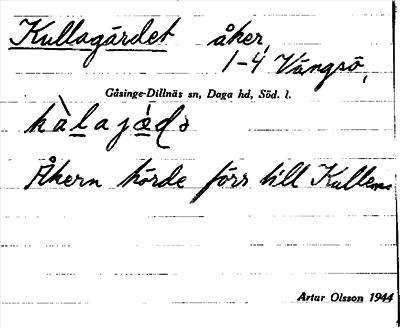 Kullagärdet åker,
1-4 Vängsö,
Gåsinge-Dillnäs sn, Daga hd, Söd. l.
Åkern hörde förr till Kullen.
Artur Olsson 1944